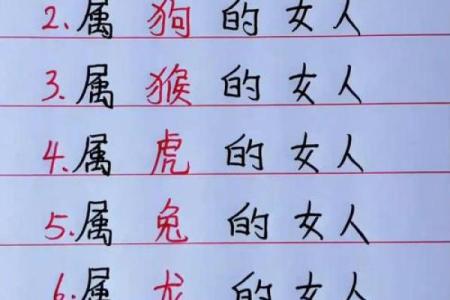 2.属狗的女人
3.属猴的女人
4.属虎的女人
5.属兔的女人
6.属龙的女人